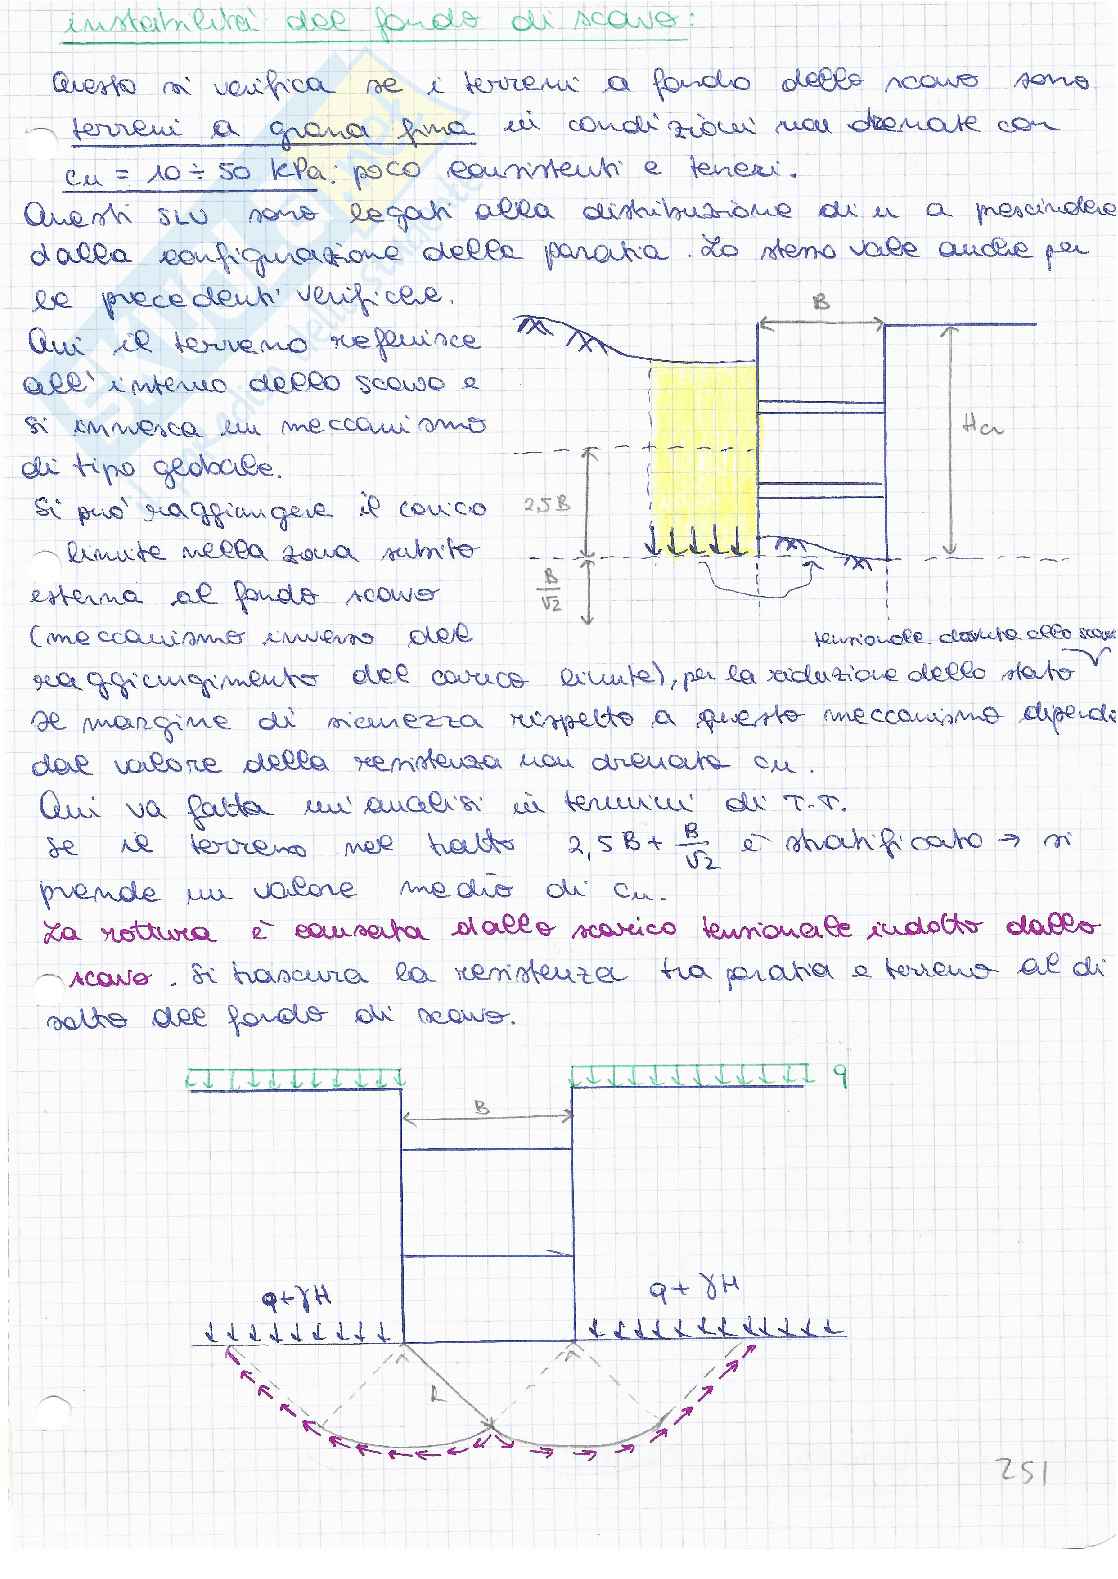 instabilità del fondo di scavo:
Questo si verifica se i terreni a fondo dello scavo sono
terreni a grana fina in condizioni non drenate con
cu = 10 ÷ 50 kPa: poco consistenti e teneri.
Questi SLU sono legati alla distribuzione di u a prescindere
dalla configurazione della paratia. Lo stesso vale anche per
le precedenti verifiche.
Qui il terreno refluisce
all'interno dello scavo e
si innesca un meccanismo
di tipo globale.
Si può raggiungere il carico
limite nella zona subito
esterna al fondo scavo
(meccanismo inverso del
raggiungimento del carico limite), per la riduzione dello stato
tensionale dovuta allo scavo
B
Hcr
2,5B
B/√2
Il margine di sicurezza rispetto a questo meccanismo dipende
dal valore della resistenza non drenata cu.
Qui va fatta un'analisi in termini di T.T.
Se il terreno nel tratto 2,5B + B/√2 è stratificato → si
prende un valore medio di cu.
La rottura è causata dallo scarico tensionale indotto dallo
scavo. Si trascura la resistenza tra paratia e terreno al di
sotto del fondo di scavo.
q
B
q+γH
q+γH
L
251